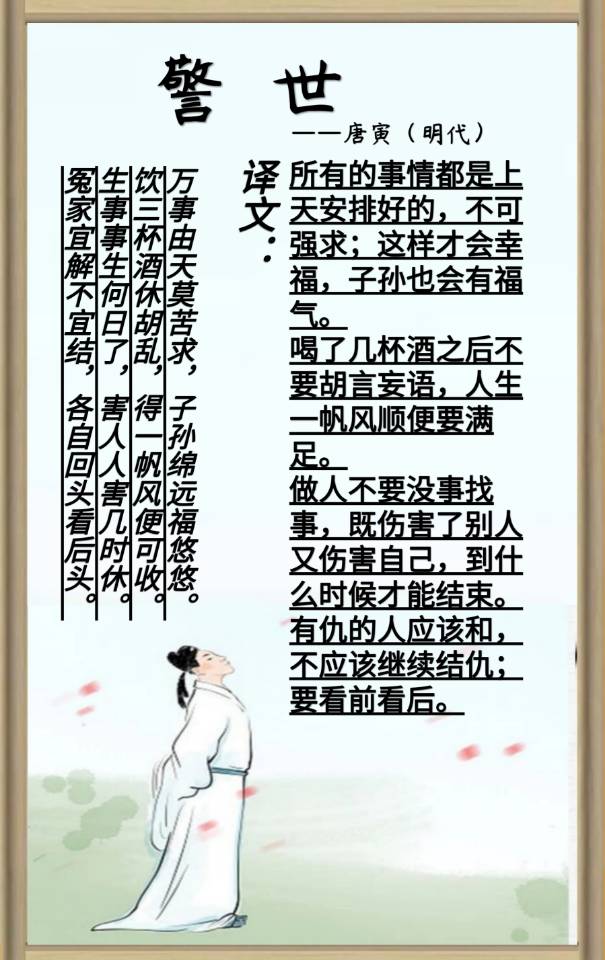 警 世
——唐寅（明代）
万事由天莫苦求，子孙绵远福悠悠。
饮三杯酒休胡乱，得一帆风便可收。
生事事生何日了，害人人害几时休。
冤家宜解不宜结，各自回头看后头。
译文：
所有的事情都是上
天安排好的，不可
强求；这样才会幸
福，子孙也会有福
气。
喝了几杯酒之后不
要胡言妄语，人生
一帆风顺便要满
足。
做人不要没事找
事，既伤害了别人
又伤害自己，到什
么时候才能结束。
有仇的人应该和，
不应该继续结仇；
要看前看后。